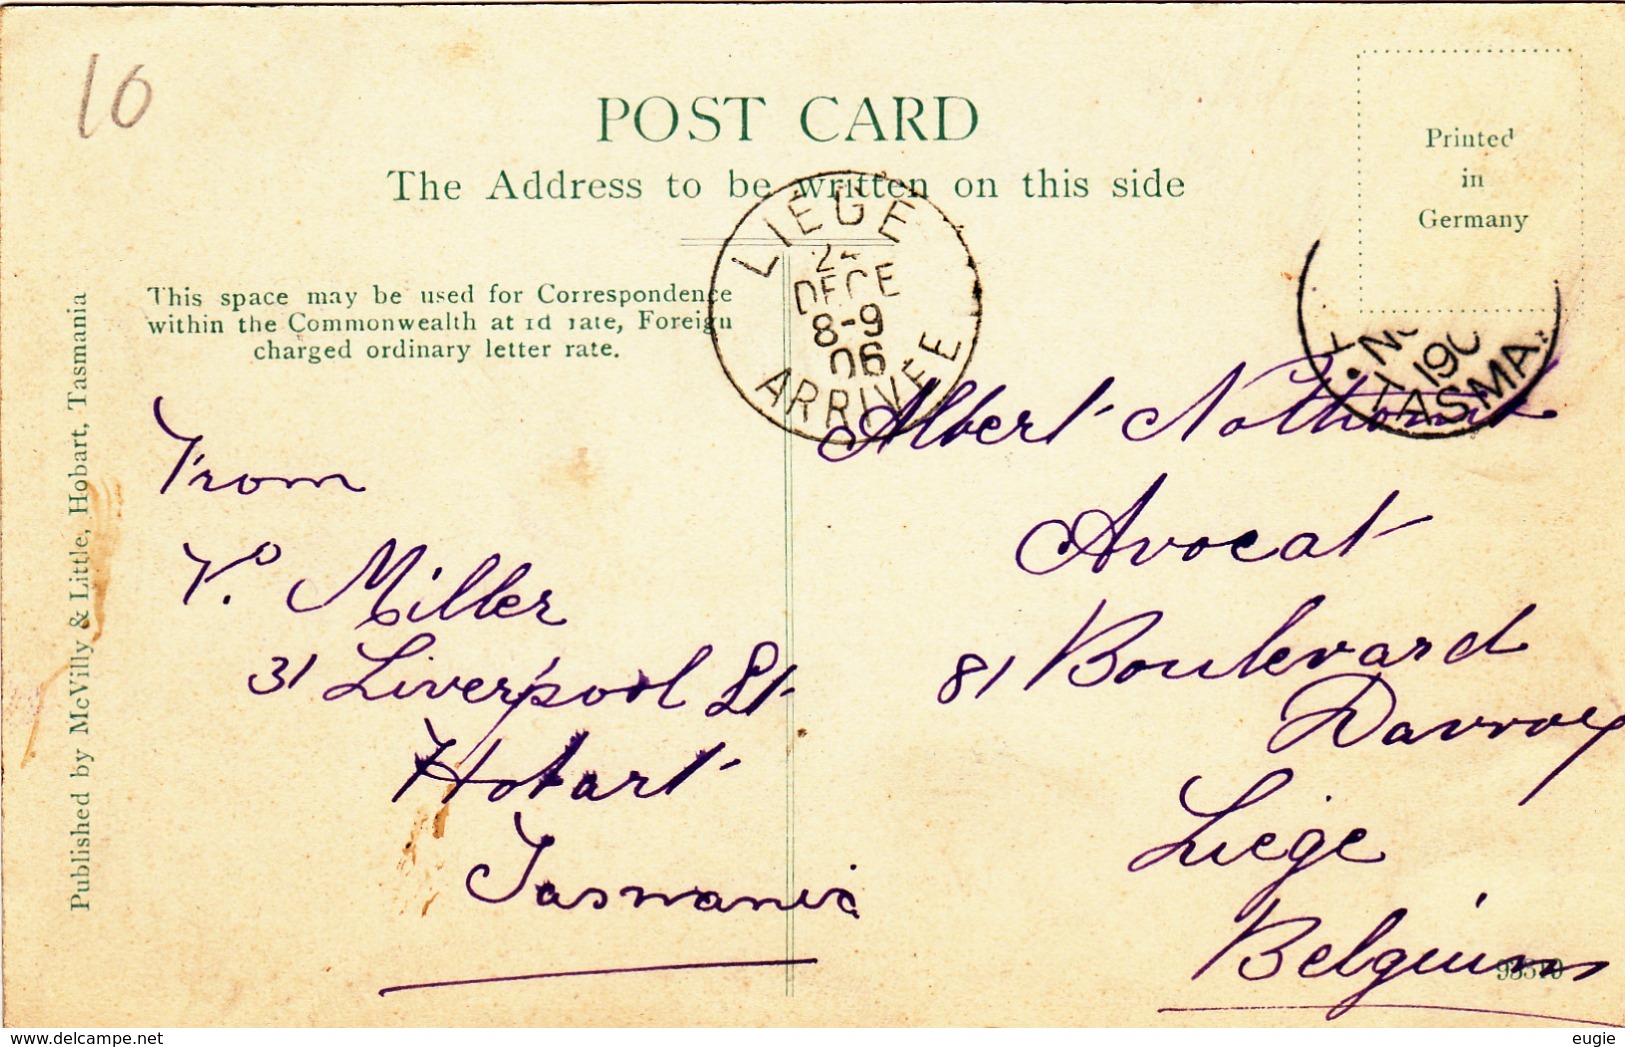 10
POST CARD
The Address to be written on this side
Printed
in
Germany
LIEGE
DECE
8-9
06
ARRIVÉE
190
TASMA.
This space may be used for Correspondence
within the Commonwealth at 1d rate, Foreign
charged ordinary letter rate.
Published by McVilly & Little, Hobart, Tasmania
From
Miller
31 Liverpool St
Hobart
Tasmania
Albert Nothomb
Avocat
81 Boulevard
Davroy
Liége
Belgium
delcampe.net
eugie